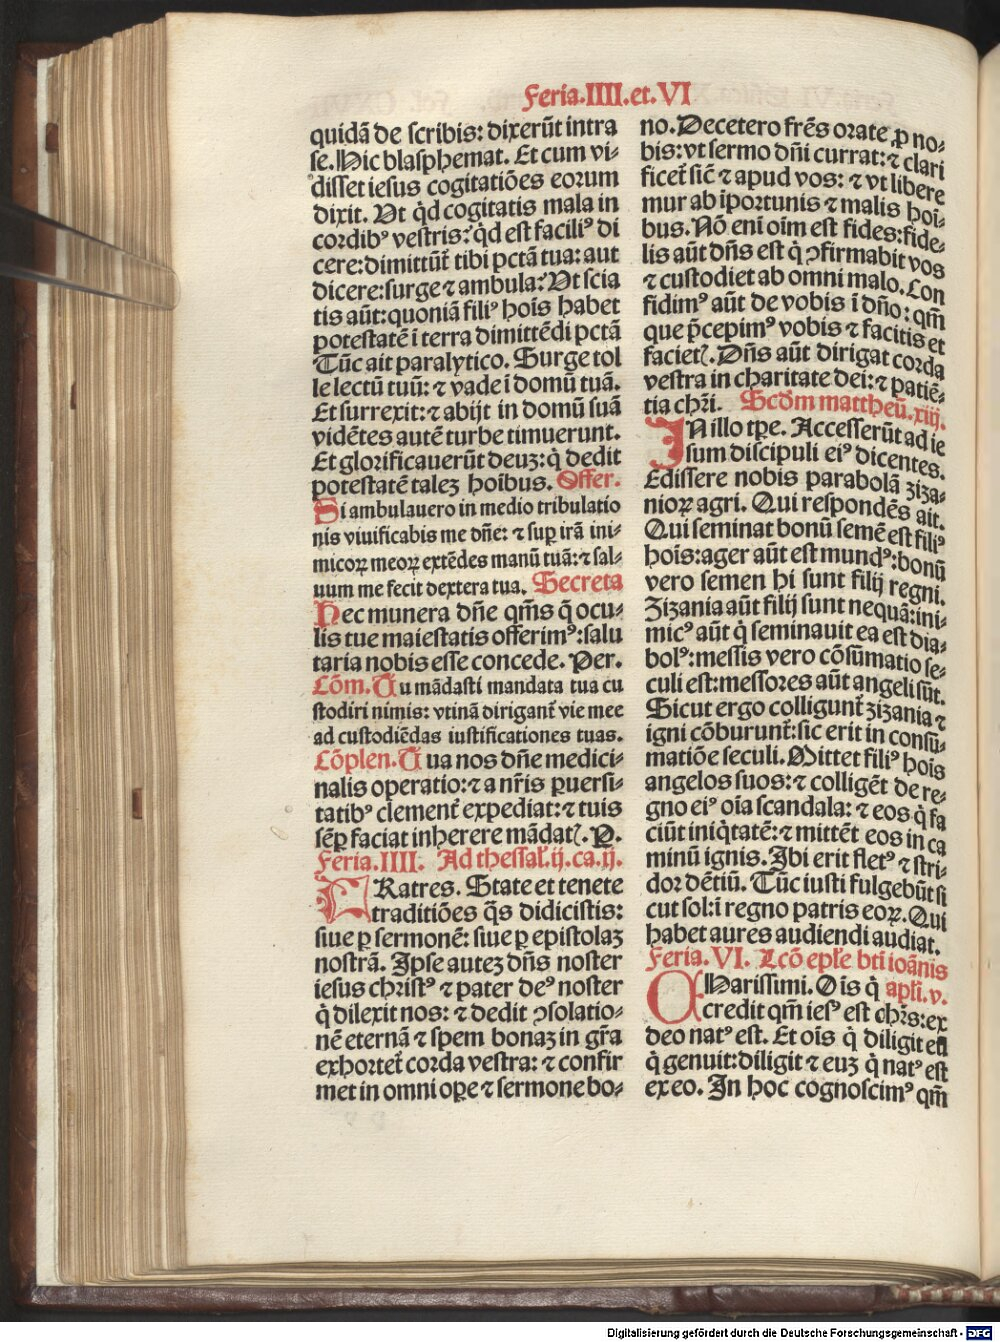 Feria.IIII.et.VI
quidã de scribis: dixerũt intra
se. Hic blasphemat. Et cum vi-
disset iesus cogitatiões eorum
dixit. Vt qͥd cogitatis mala in
cordibꝰ vestris: qͥd est faciliꝰ di
cere: dimittũt̃ tibi pctã tua: aut
dicere: surge ⁊ ambula: Vt scia
tis aũt: quoniã filiꝰ hoĩs habet
potestatẽ ĩ terra dimittẽdi pctã
Tũc ait paralytico. Surge tol
le lectũ tuũ: ⁊ vade ĩ domũ tuã.
Et surrexit: ⁊ abijt in domũ suã
vidẽtes autẽ turbe timuerunt.
Et glorificauerũt deuʒ: q̇ dedit
potestatẽ taleʒ hoĩbus. Offer.
Si ambulauero in medio tribulatio
nis viuificabis me dñe: ⁊ suꝑ irã ini-
micoꝝ meoꝝ extẽdes manũ tuã: ⁊ sal-
uum me fecit dextera tua. Secreta
Hec munera dñe qm̃s q̃ ocu-
lis tue maiestatis offerimꝰ: salu
taria nobis esse concede. Per.
Cõm. Tu mãdasti mandata tua cu
stodiri nimis: vtinã dirigant̃ vie mee
ad custodiẽdas iustificationes tuas.
Cõplen. Tua nos dñe medici-
nalis operatio: ⁊ a nr̃is ꝑuersi-
tatibꝰ clement̃ expediat: ⁊ tuis
sẽꝑ faciat inherere mãdatꝭ. P.
Feria.IIII. Ad thessal̃.ij.ca.ij.
FRatres. State et tenete
traditiões q̃s didicistis:
siue ꝑ sermonẽ: siue ꝑ epistolaʒ
nostrã. Ipse auteʒ dñs noster
iesus christꝰ ⁊ pater deꝰ noster
q̇ dilexit nos: ⁊ dedit ꝯsolatio-
nẽ eternã ⁊ spem bonaʒ in gr̃a
exhortet̃ corda vestra: ⁊ confir
met in omni oꝑe ⁊ sermone bo-
no. Decetero frẽs orate ꝓ no-
bis: vt sermo dñi currat: ⁊ clari
ficet̃ sic̃ ⁊ apud vos: ⁊ vt libere
mur ab ĩportunis ⁊ malis hoĩ-
bus. Nõ eni oĩm est fides: fide-
lis aũt dñs est q̇ ꝯfirmabit vos
⁊ custodiet ab omni malo. Con
fidimꝰ aũt de vobis ĩ dño: qm̃
que p̃cepimꝰ vobis ⁊ facitis et
facietꝭ. Dñs aũt dirigat corda
vestra in charitate dei: ⁊ patiẽ-
tia chr̃i. Scd̃m mattheũ.xiij.
IN illo tꝑe. Accesserũt ad ie
sum discipuli eiꝰ dicentes.
Edissere nobis parabolã ziza-
nioꝝ agri. Qui respondẽs ait.
Qui seminat bonũ semẽ est filiꝰ
hoĩs: ager aũt est mundꝰ: bonũ
vero semen hi sunt filij regni.
Zizania aũt filij sunt nequã: ini-
micꝰ aũt q̇ seminauit ea est dia-
bolꝰ: messis vero cõsũmatio se-
culi est: messores aũt angeli sũt.
Sicut ergo colligunt̃ zizania ⁊
igni cõburunt̃: sic erit in consũ-
matiõe seculi. Mittet filiꝰ hoĩs
angelos suos: ⁊ colligẽt de re-
gno eiꝰ oĩa scandala: ⁊ eos q̇ fa
ciũt iniqͥtatẽ: ⁊ mittẽt eos in ca
minũ ignis. Ibi erit fletꝰ ⁊ stri-
dor dẽtiũ. Tũc iusti fulgebũt si
cut sol: ĩ regno patris eoꝝ. Qui
habet aures audiendi audiat.
Feria.VI. Lcõ epl̃e bt̃i ioãnis
CHarissimi. Oĩs q̇ apl̃i.v.
credit qm̃ iesꝰ est chr̃s: ex
deo natꝰ est. Et oĩs q̇ diligit eũ
q̇ genuit: diligit ⁊ euʒ q̇ natꝰ est
ex eo. In hoc cognoscimꝰ qm̃
Digitalisierung gefördert durch die Deutsche Forschungsgemeinschaft - DFG